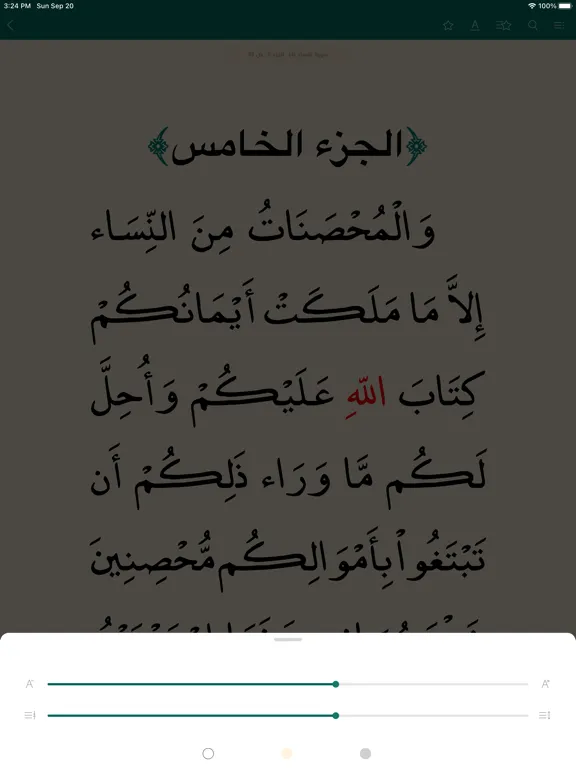 3:24 PM Sun Sep 20
100%
﴿الجزء الخامس﴾
وَالْمُحْصَنَاتُ مِنَ النِّسَاء
إِلاَّ مَا مَلَكَتْ أَيْمَانُكُمْ
كِتَابَ اللّهِ عَلَيْكُمْ وَأُحِلَّ
لَكُم مَّا وَرَاء ذَلِكُمْ أَن
تَبْتَغُواْ بِأَمْوَالِكُم مُّحْصِنِينَ